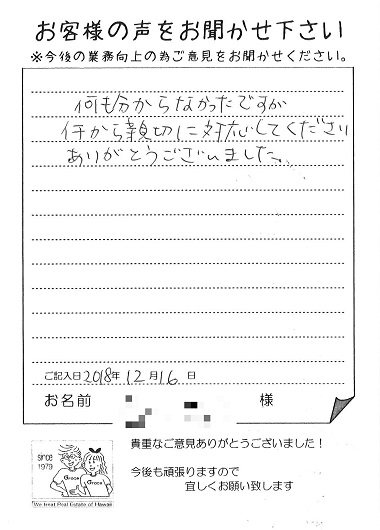 お客様の声をお聞かせ下さい
※今後の業務向上の為ご意見をお聞かせください。
何も分からなかったですが
1から親切に対応してくださり
ありがとうございました。
ご記入日2018年12月16日
お名前 様
since
1979
Grace
Grace
We treat Real Estate of Hawaii
貴重なご意見ありがとうございました!
今後も頑張りますので
宜しくお願い致します